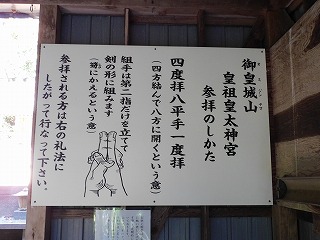 御皇城山
オミジンヤマ
皇祖皇太神宮
参拝のしかた
四度拝八平手一度拝
（四方結んで八方に開くという意）
組手は第二指だけを立てて
剣の形に組みます
（蒟にかえるという意）
参拝される方は右の礼法に
したがって行なって下さい。